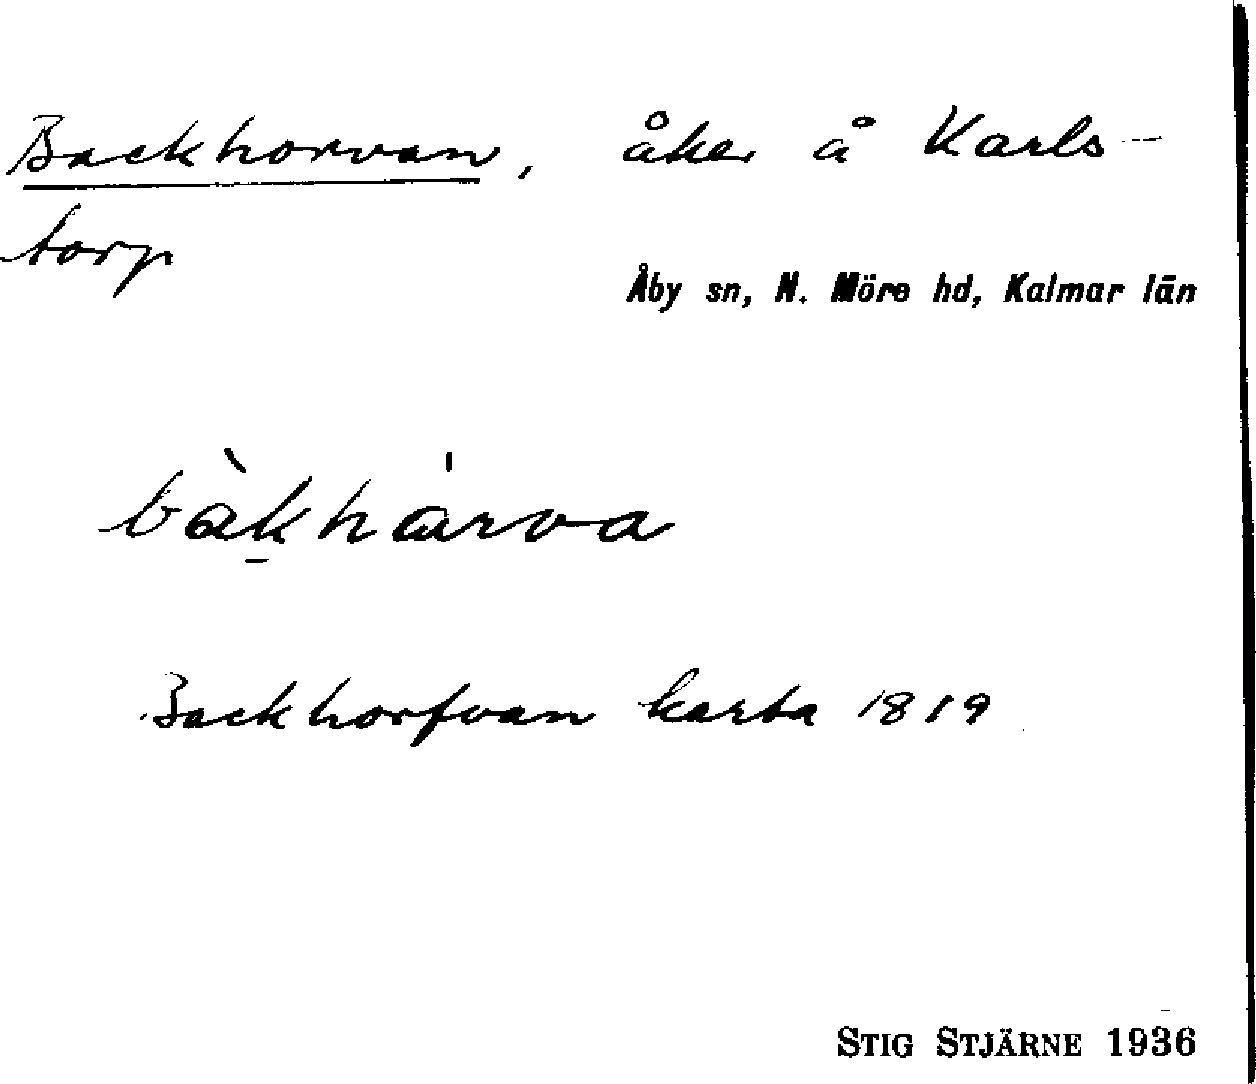 Backhorvan, åker å Karls-
torp
Åby sn, N. Möre hd, Kalmar län
bàk̠hárva
Backhorfvan karta 1819
STIG STJÄRNE 1936